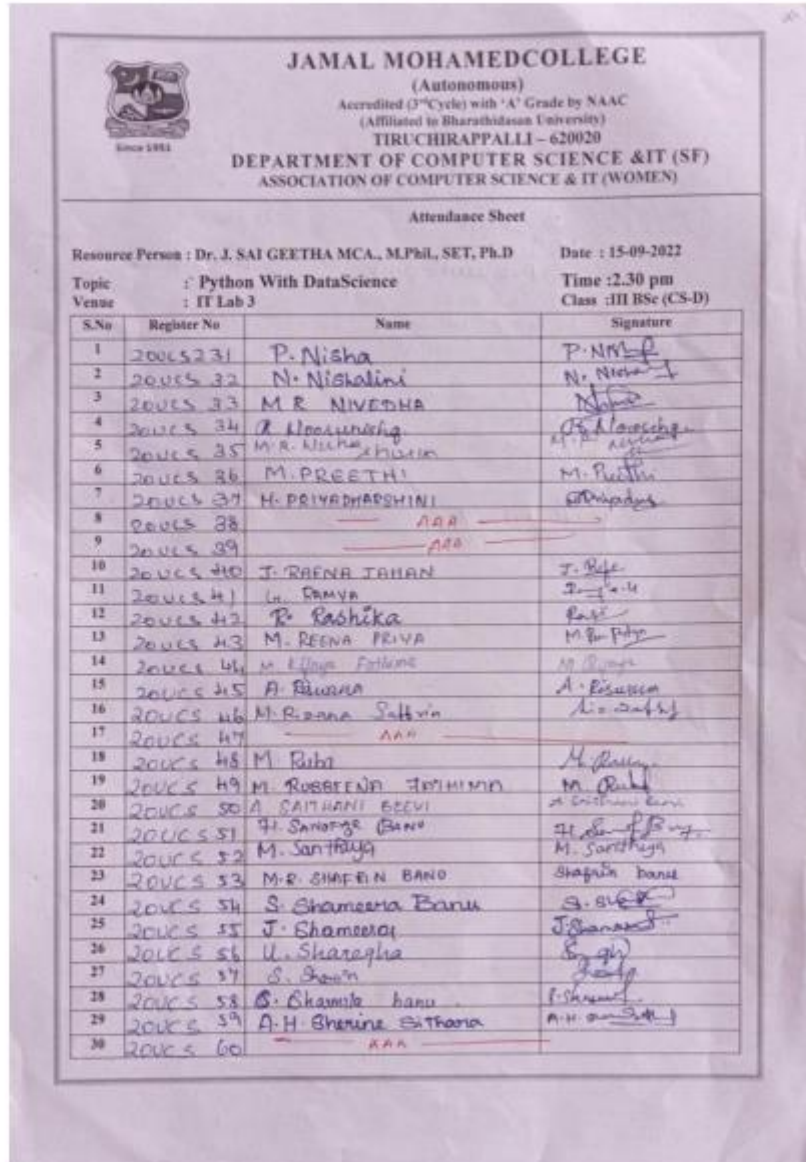 Since 1951
JAMAL MOHAMEDCOLLEGE
(Autonomous)
Accredited (3rdCycle) with 'A' Grade by NAAC
(Affiliated to Bharathidasan University)
TIRUCHIRAPPALLI – 620020
DEPARTMENT OF COMPUTER SCIENCE &IT (SF)
ASSOCIATION OF COMPUTER SCIENCE & IT (WOMEN)
Attendance Sheet
Resource Person : Dr. J. SAI GEETHA MCA., M.Phil., SET, Ph.D Date : 15-09-2022
Topic : Python With DataScience Time :2.30 pm
Venue : IT Lab 3 Class :III BSc (CS-D)
S.No Register No Name Signature
1 20UCS231 P. Nisha P.
2 20UCS 32 N. Nishalini N.
3 20UCS 33 M R NIVEDHA
4 20UCS 34
5 20UCS 35 M.R.
6 20UCS 36 M. PREETHI M. Preethi
7 20UCS 37 H. PRIYADHARSHINI
8 20UCS 38 AAA
9 20UCS 39 AAA
10 20UCS 40 J. RAENA JAHAN J.
11 20UCS 41 RAMYA
12 20UCS 42 R. Rashika
13 20UCS 43 M. REENA PRIYA M.
14 20UCS 44 M Fathima M
15 20UCS 45 A. Riswana A.
16 20UCS 46 M. Rizana
17 20UCS 47 AAA
18 20UCS 48 M Ruba M.
19 20UCS 49 M. RUBBEENA FATHIMA M
20 20UCS 50 A SAITHANI BEEVI
21 20UCS 51 BANO
22 20UCS 52 M. Santhiya M. Santhiya
23 20UCS 53 M.R. SHAFRIN BANO Shafrin banu
24 20UCS 54 S. Shameema Banu S.
25 20UCS 55 J. Shameeraj J.
26 20UCS 56 U. Sharegha
27 20UCS 57 S.
28 20UCS 58 S. Shamila banu
29 20UCS 59 A.H. Sherine Sithara A.H.
30 20UCS 60 AAA